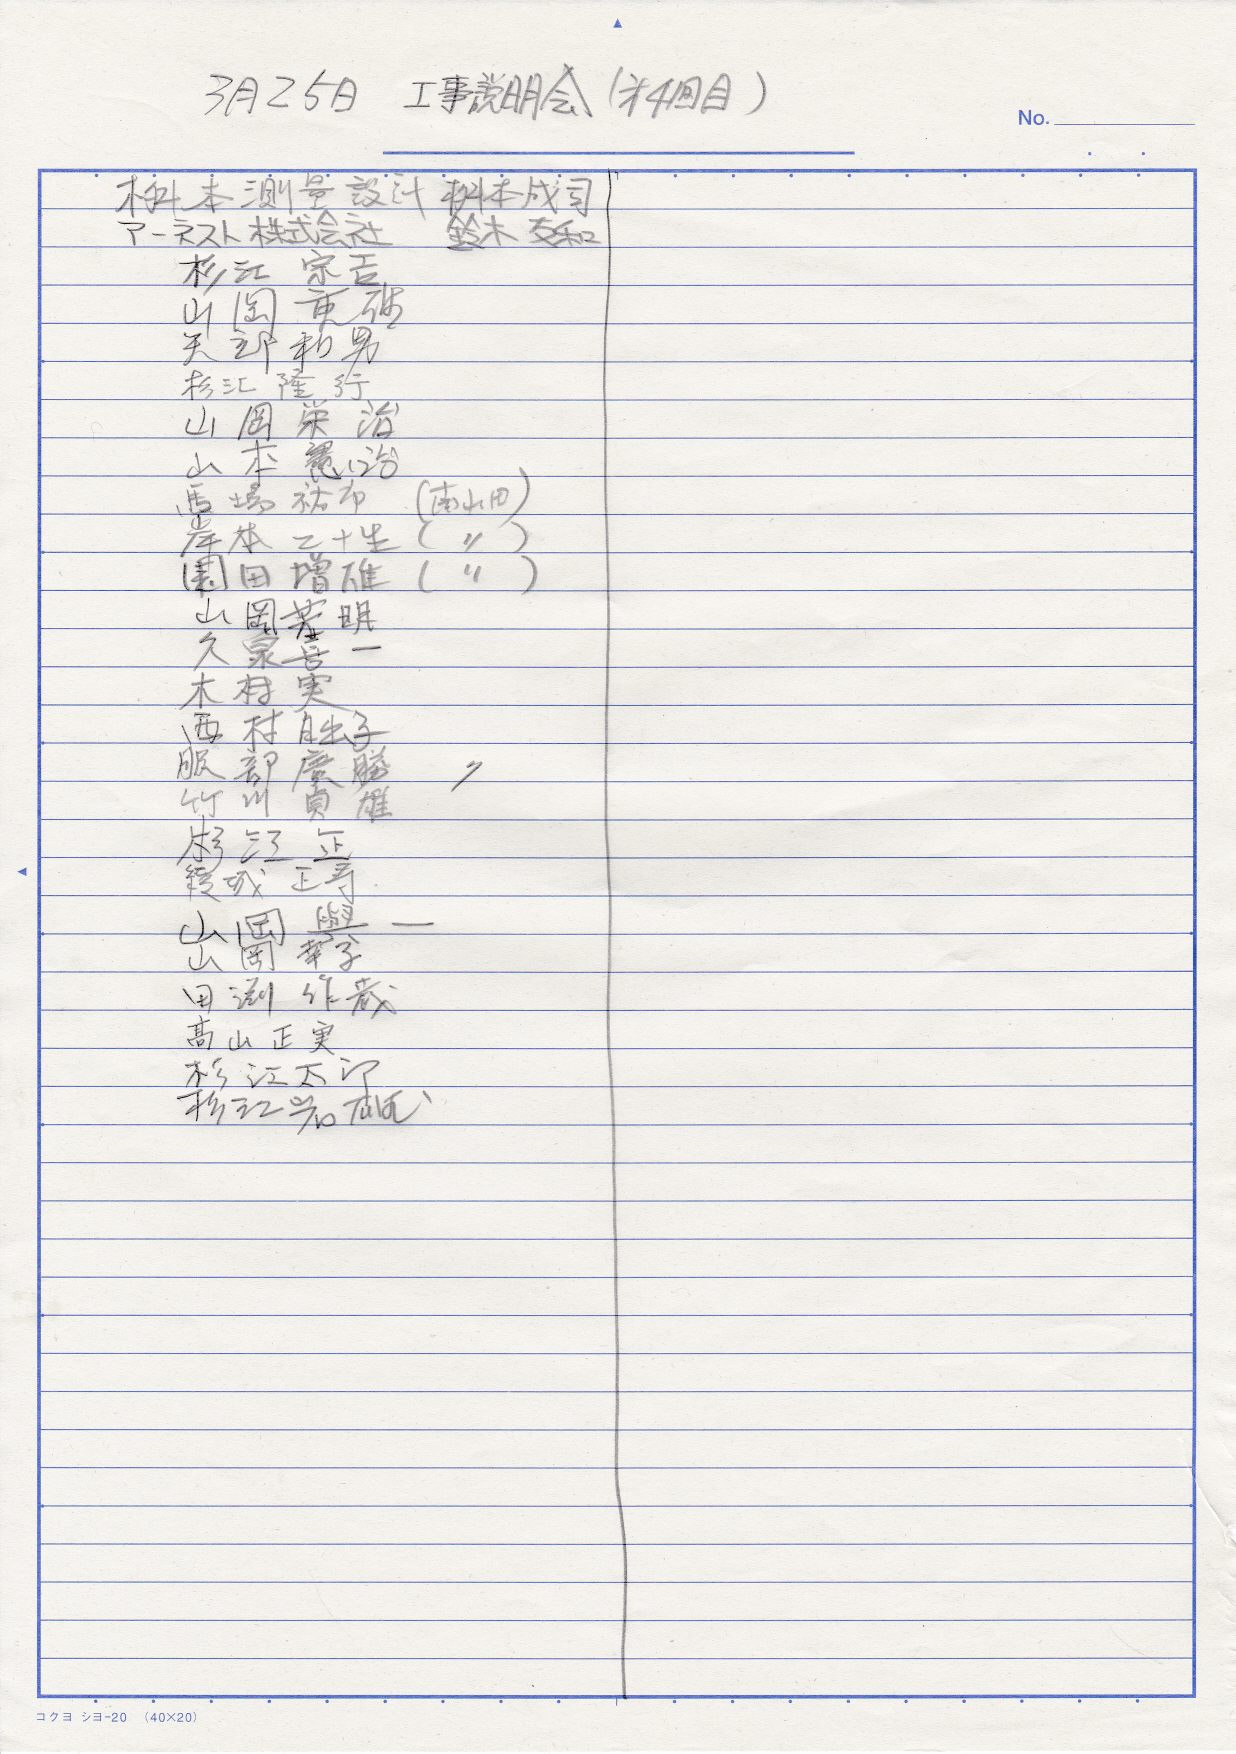 3月25日 工事説明会(才4回目)
No.
桝本測量設計 桝本成司
アーネスト株式会社 鈴木友和
杉江宗吉
山岡 雄
矢部和男
杉江隆行
山岡栄治
山本憲治
馬場祐布 (南山田)
岸本乙十生 ( 〃 )
園田増雄 ( 〃 )
山岡芳明
久家喜一
木村実
西村日出子
服部慶勝
竹川貞雄
杉江正
綾城正寿
山岡與一
山岡幸子
田渕作蔵
髙山正実
杉江太
杉江
コクヨ シヨ-20 (40×20)